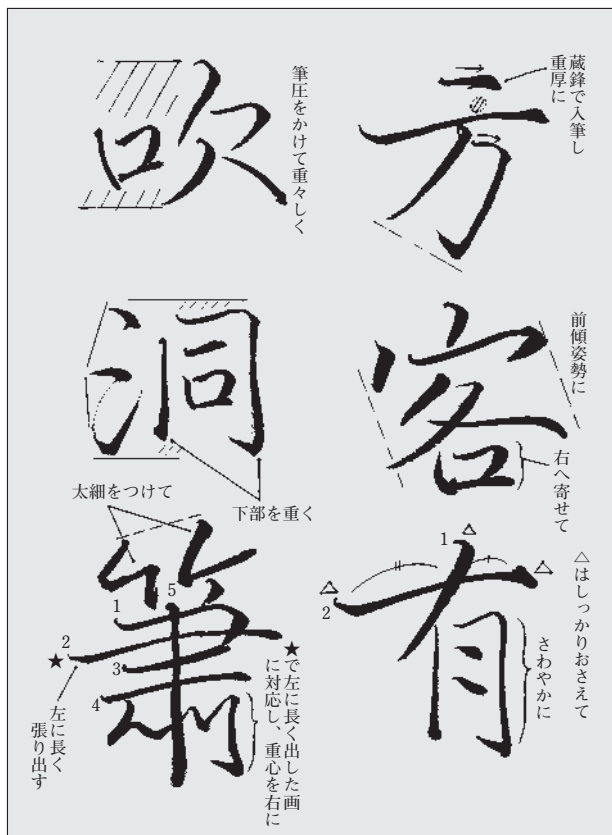 方
蔵鋒で入筆し
重厚に
客
前傾姿勢に
右へ寄せて
有
1
2
△はしっかりおさえて
さわやかに
吹
筆圧をかけて重々しく
洞
下部を重く
太細をつけて
簫
1
2
3
4
5
★で左に長く出した画
に対応し、重心を右に
★
左に長く
張り出す